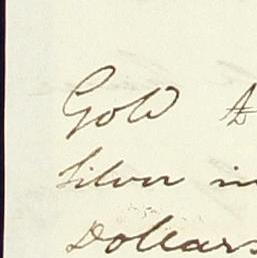 Gold &
Silver in
Dollars